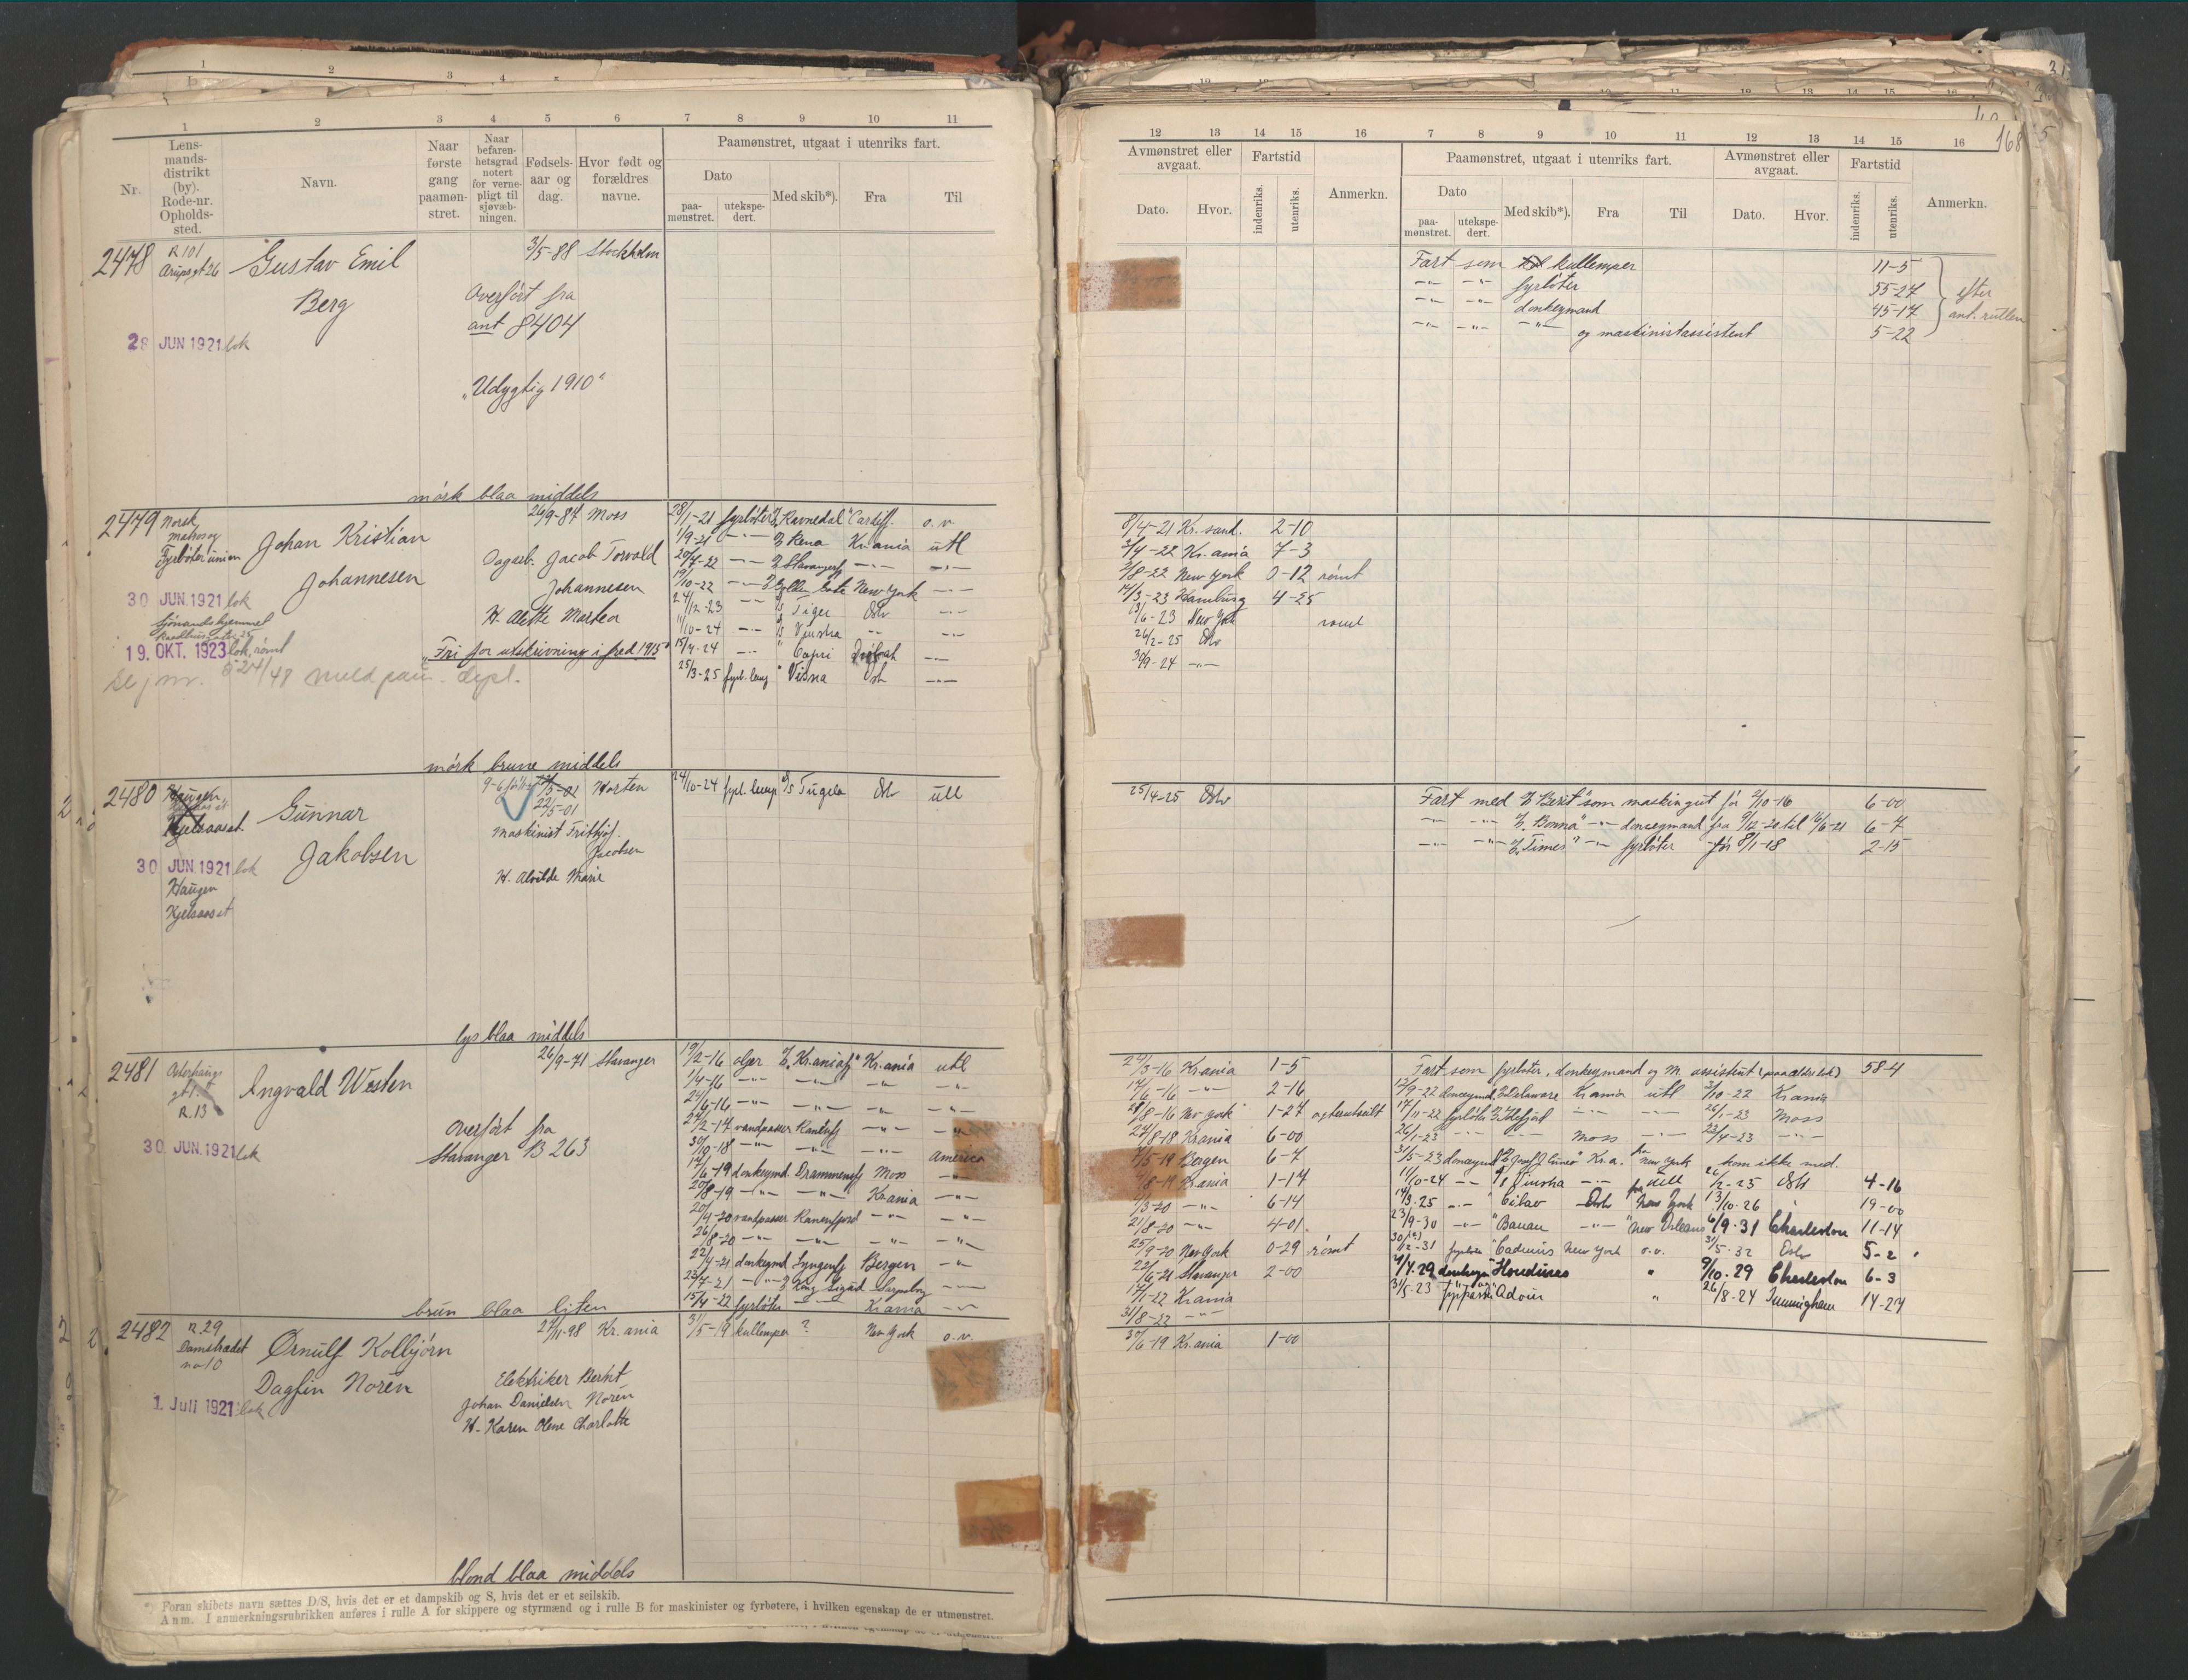 1 2 3 4 5 6 7 8 9 10 11
Nr.
Lens-
mands-
distrikt
(by).
Rode-nr.
Opholds-
sted.
Navn.
Naar
første
gang
paamøn-
stret.
Naar
befaren-
hetsgrad
notert
for verne-
pligt til
sjøvæb-
ningen.
Fødsels-
aar og
dag.
Hvor født og
forældres
navne.
Paamønstret, utgaat i utenriks fart.
Dato
paa-
mønstret.
utekspe-
dert.
Med skib*).
Fra
Til
2478 R 101
Arupsgt 26
Gustav Emil
Berg
3/5-88 Stockholm
Overført fra
ant 8404
28 JUN 1921 lok
"Udygtig 1910"
mørk blaa middels
2479 Norsk
Matros og
Fyrbøter union
Johan Kristian
Johannesen
26/9-87 Moss
Dagarb. Jacob Torvald
Johannesen
H. Alette Martea
30 JUN. 1921 lok
Sjømandshjemmet
19. OKT. 1923 lok. rømt
"Fri for utskrivning i fred 1915"
28/1-21 fyrbøter Ravnedal Cardiff o.v.
1/9-21 -"- Rena Kr.ania utl
20/7-22 -"- Stavangerfj -"- -"-
19/10-22 -"- Golden Gate New York -"-
24/12-23 -"- Tiger Oslo -"-
11/10-24 -"- Vinstra -"- -"-
15/4-24 -"- Capri -"-
25/3-25 fyrb. lemp Visna -"-
mørk brune middels
2480 Haugen
Kjelsaaset
Gunnar
Jakobsen
22/5-01
Horten
Maskinist Frithjof
Jacobsen
H. Alvilde Marie
30 JUN 1921 lok
Haugen
Kjelsaaset
24/10-24 fyrb. lemp D/S Tugela Oslo utl
lys blaa middels
2481 Osterhaugs
gt 1.
R.13
Angvald Westen
26/9-71 Stavanger
Overført fra
Stavanger B 263
30 JUN. 1921 lok
19/2-16 oljer Kr.aniafj Kr.ania utl
1/4-16 -"- -"- -"- -"-
24/6-16 -"- -"- -"- -"-
24/2-17 vandpasser Ranenfj -"- -"-
30/9-18 -"- -"- -"- America
17/6-19 donkeymd Drammensfj Moss -"-
20/8-19 -"- -"- Kr.ania -"-
20/4-20 vandpasser Ranenfjord -"- -"-
26/8-20 -"- -"- -"- -"-
22/4-21 donkeymd Lyngenfj Bergen -"-
22/7-21 -"- King Sigurd Sarpsborg -"-
15/4-22 fyrbøter -"- Kr.ania -"-
brun blaa liten
2482 R. 29
Damstrædet
no 10
Ørnulf Kolbjørn
Dagfin Norén
27/11-98 Kr.ania
Elektriker Bernt
Johan Danielsen Norén
H. Karen Olene Charlotte
1. Juli 1921 lok
31/5-19 kullemper ? New York o.v.
blond blaa middels
*) Foran skibets navn sættes D/S, hvis det er et dampskib og S, hvis det er et seilskib.
Anm. I anmerkningsrubrikken anføres i rulle A for skippere og styrmænd og i rulle B for maskinister og fyrbøtere, i hvilken egenskap de er utmønstret.
168
12 13 14 15 16 7 8 9 10 11 12 13 14 15 16
Avmønstret eller
avgaat.
Dato. Hvor.
Fartstid
indenriks. utenriks.
Anmerkn.
Paamønstret, utgaat i utenriks fart.
Dato
paa-
mønstret.
utekspe-
dert.
Med skib*).
Fra
Til
Avmønstret eller
avgaat.
Dato. Hvor.
Fartstid
indenriks. utenriks.
Anmerkn.
Fart som kullemper 11-5
-"- -"- fyrbøter 55-27
-"- -"- donkeymand 45-17
-"- -"- -"- og maskinistassistent 5-22
efter
ant. rullen
8/4-21 Kr.sand. 2-10
3/4-22 Kr.ania 7-3
2/8-22 New York 0-12 rømt
14/3-23 Hamburg 4-25
13/6-23 New York rømt
26/2-25 Oslo
30/9-24 -"-
25/4-25 Oslo
Fart med "Berit" som maskingut før 2/10-16 6-00
-"- -"- "Bonna" -"- donkeymand fra 9/12-20 til 16/6-21 6-7
-"- -"- "Times" -"- fyrbøter før 8/1-18 2-15
24/3-16 Kr.ania 1-5
14/6-16 -"- 2-16
28/8-16 New York 1-27
24/8-18 Kr.ania 6-00
4/5-19 Bergen 6-7
2/8-19 Kr.ania 1-14
2/3-20 -"- 6-14
21/8-20 -"- 4-01
25/9-20 New York 0-29 rømt
22/6-21 Stavanger 2-00
17/1-22 Kr.ania
31/8-22 -"-
Fart som fyrbøter, donkeymand og m. assistent (paa eldre lok) 58-4
12/9-22 donkeymd Delaware Kr.ania utl 3/10-22 Kr.ania
17/11-22 fyrbøter Idefjord -"- -"- 26/1-23 Moss
26/1-23 -"- -"- Moss -"- 23/4-23 -"-
31/5-23 donkeymd Josef J. Cuneo Kr.a. fra New York kom ikke med.
11/10-24 -"- Vinstra -"- utl 26/2-25 Oslo 4-16
14/3-25 -"- Oslo New York 13/10-26 19-00
23/9-30 -"- Banan -"- New Orleans 6/9-31 Charleston 11-14
30/12-31 fyrbøter Cadmus New York o.v. 31/5-32 Oslo 5-2
4/4-29 donkeym Honduras " 9/10-29 Charleston 6-3
31/5-23 Advin " 26/8-24 14-27
30/6-19 Kr.ania 1-00